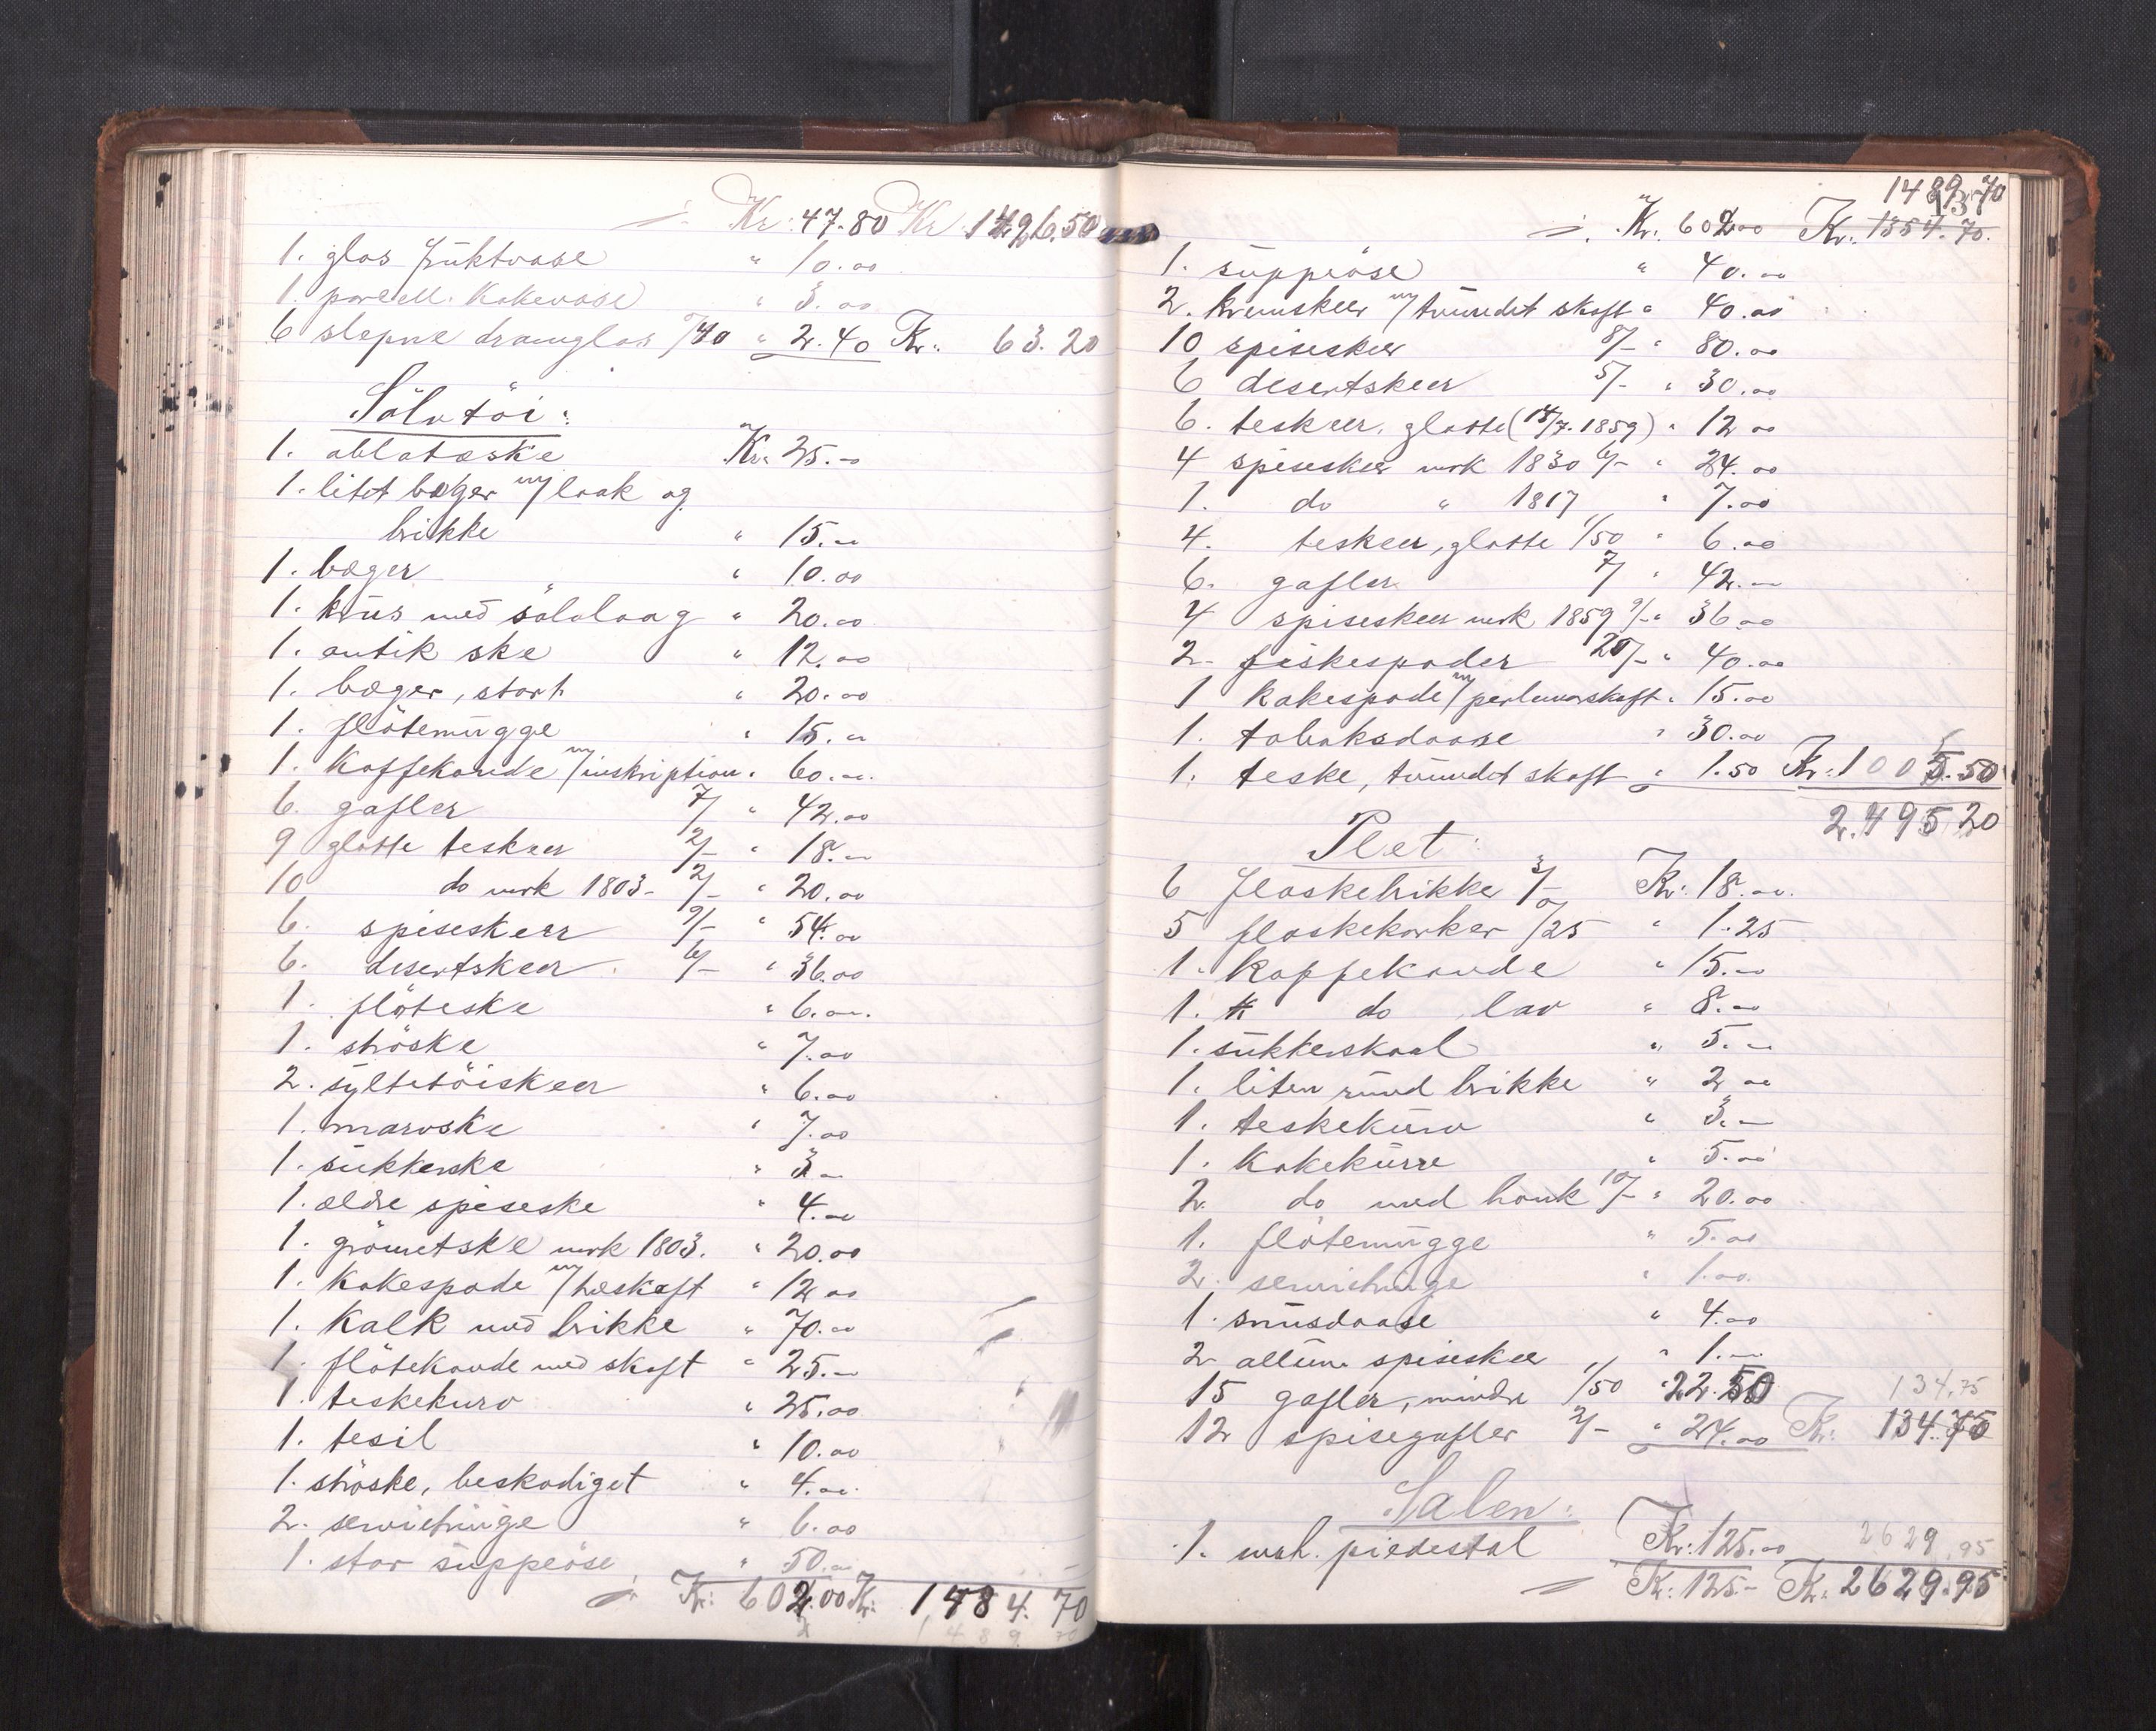 Kr: 47.80 Kr 1426.50
1. glas früktvase " 10.00
1. porcell. Kakevase " 3.00
6 slepne dramglas /40 " 2.40 Kr. 63.20
Sölvtöi:
1. ablatæske Kr. 25.-
1. litet bæger m/ laak og
brikke " 15.-
1. bæger " 10.00
1. krüs med sölvlaag " 20.00
1. antik ske " 12.00
1. bæger, stort " 20.00
1. flötemügge " 15.-
1. Kaffekande m/ inskription " 60.-
6. gafler 7/ " 42.00
9 glatte teskeer 2/- " 18.-
10 do mrk 1803- 2/- " 20.00
6. spiseskeer 9/- " 54.00
6. desertskeer 6/- " 36.00
1. flöteske " 6.-
1. ströske " 7.00
2. syltetöiskeer " 6.00
1. marvske " 7.00
1. sükkerske " 3.-
1. ældre spiseske " 4.-
1. grömetske mrk 1803. " 20.00
1. Kakespade m/ træskaft " 12.00
1. Kalk med brikke " 70.-
1. flötekande med skaft " 25.-
1. teskekurv " 25.00
1. tesil " 10.00
1. ströske, beskadiget " 4.-
2. serviettringe " 6.00
1. stor süppeöse " 50.-
Kr: 602.00 Kr. 1484.70
1489.70
1489.70
Kr. 602.00 Kr. 1354.70.
1. süppeöse " 40.-
2. kremskeer m/ tvundet skaft " 40.00
10 spiseskeer 8/- " 80.-
6 desertskeer 5/- " 30.00
6. teskeer, glatte (14/7. 1859) " 12.00
4 spiseskeer mrk 1830 6/- " 24.00
1. do " 1817 " 7.00
4. teskeer, glatte 1/50 " 6.00
6. gafler 7/ " 42.-
4 spiseskeer mrk 1859 9/- " 36.00
2- fiskespader 20/- " 40.00
1 Kakespade m/ perlemorskaft " 15.00
1. tobaksdaase " 30.00
1. teske, tvundet skaft " 1.50 Kr: 1005.50
2.495 20
Plet:
6 flaskebrikke 3/- Kr: 18.-
5 flaskekorker /25 " 1.25
1. Kaffekande " 15.-
1. do lav " 8.-
1. sükkerskaal " 5.-
1. liten ründ brikke " 2.-
1. teskekürv " 3.-
1. Kakekürv " 5.00
2. do med hank 10/- " 20.00
1. flötemügge " 5.00
2. serviettringe " 1.00
1. snüsdaase " 4.00
2 allüm. spiseskeer " 1.-
15 gafler, mindre 1/50 " 22.50 134.75
12 spisegafler 2/- " 24.00 Kr: 134.75
Salen:
1. mah. piedestal Kr: 125.00 2629.95
Kr: 125- Kr. 2629.95